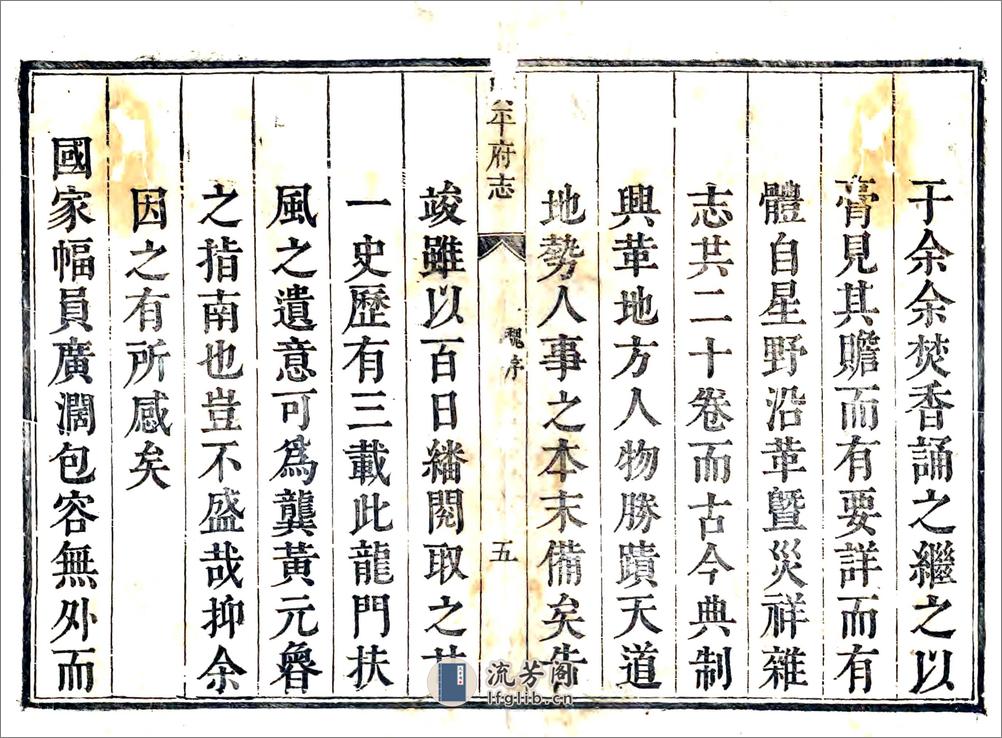 于余余焚香誦之繼之以
膏見其贍而有要詳而有
體自星野沿革暨災祥雜
志共二十卷而古今典制
興革地方人物勝蹟天道
地勢人事之本末備矣告
平府志
魏序
五
竣雖以百日繙閱取之其
一史歷有三載此龍門扶
風之遺意可爲龔黃元魯
之指南也豈不盛哉抑余
因之有所感矣
國家幅員廣濶包容無外而
流芳阁
lfglib.cn